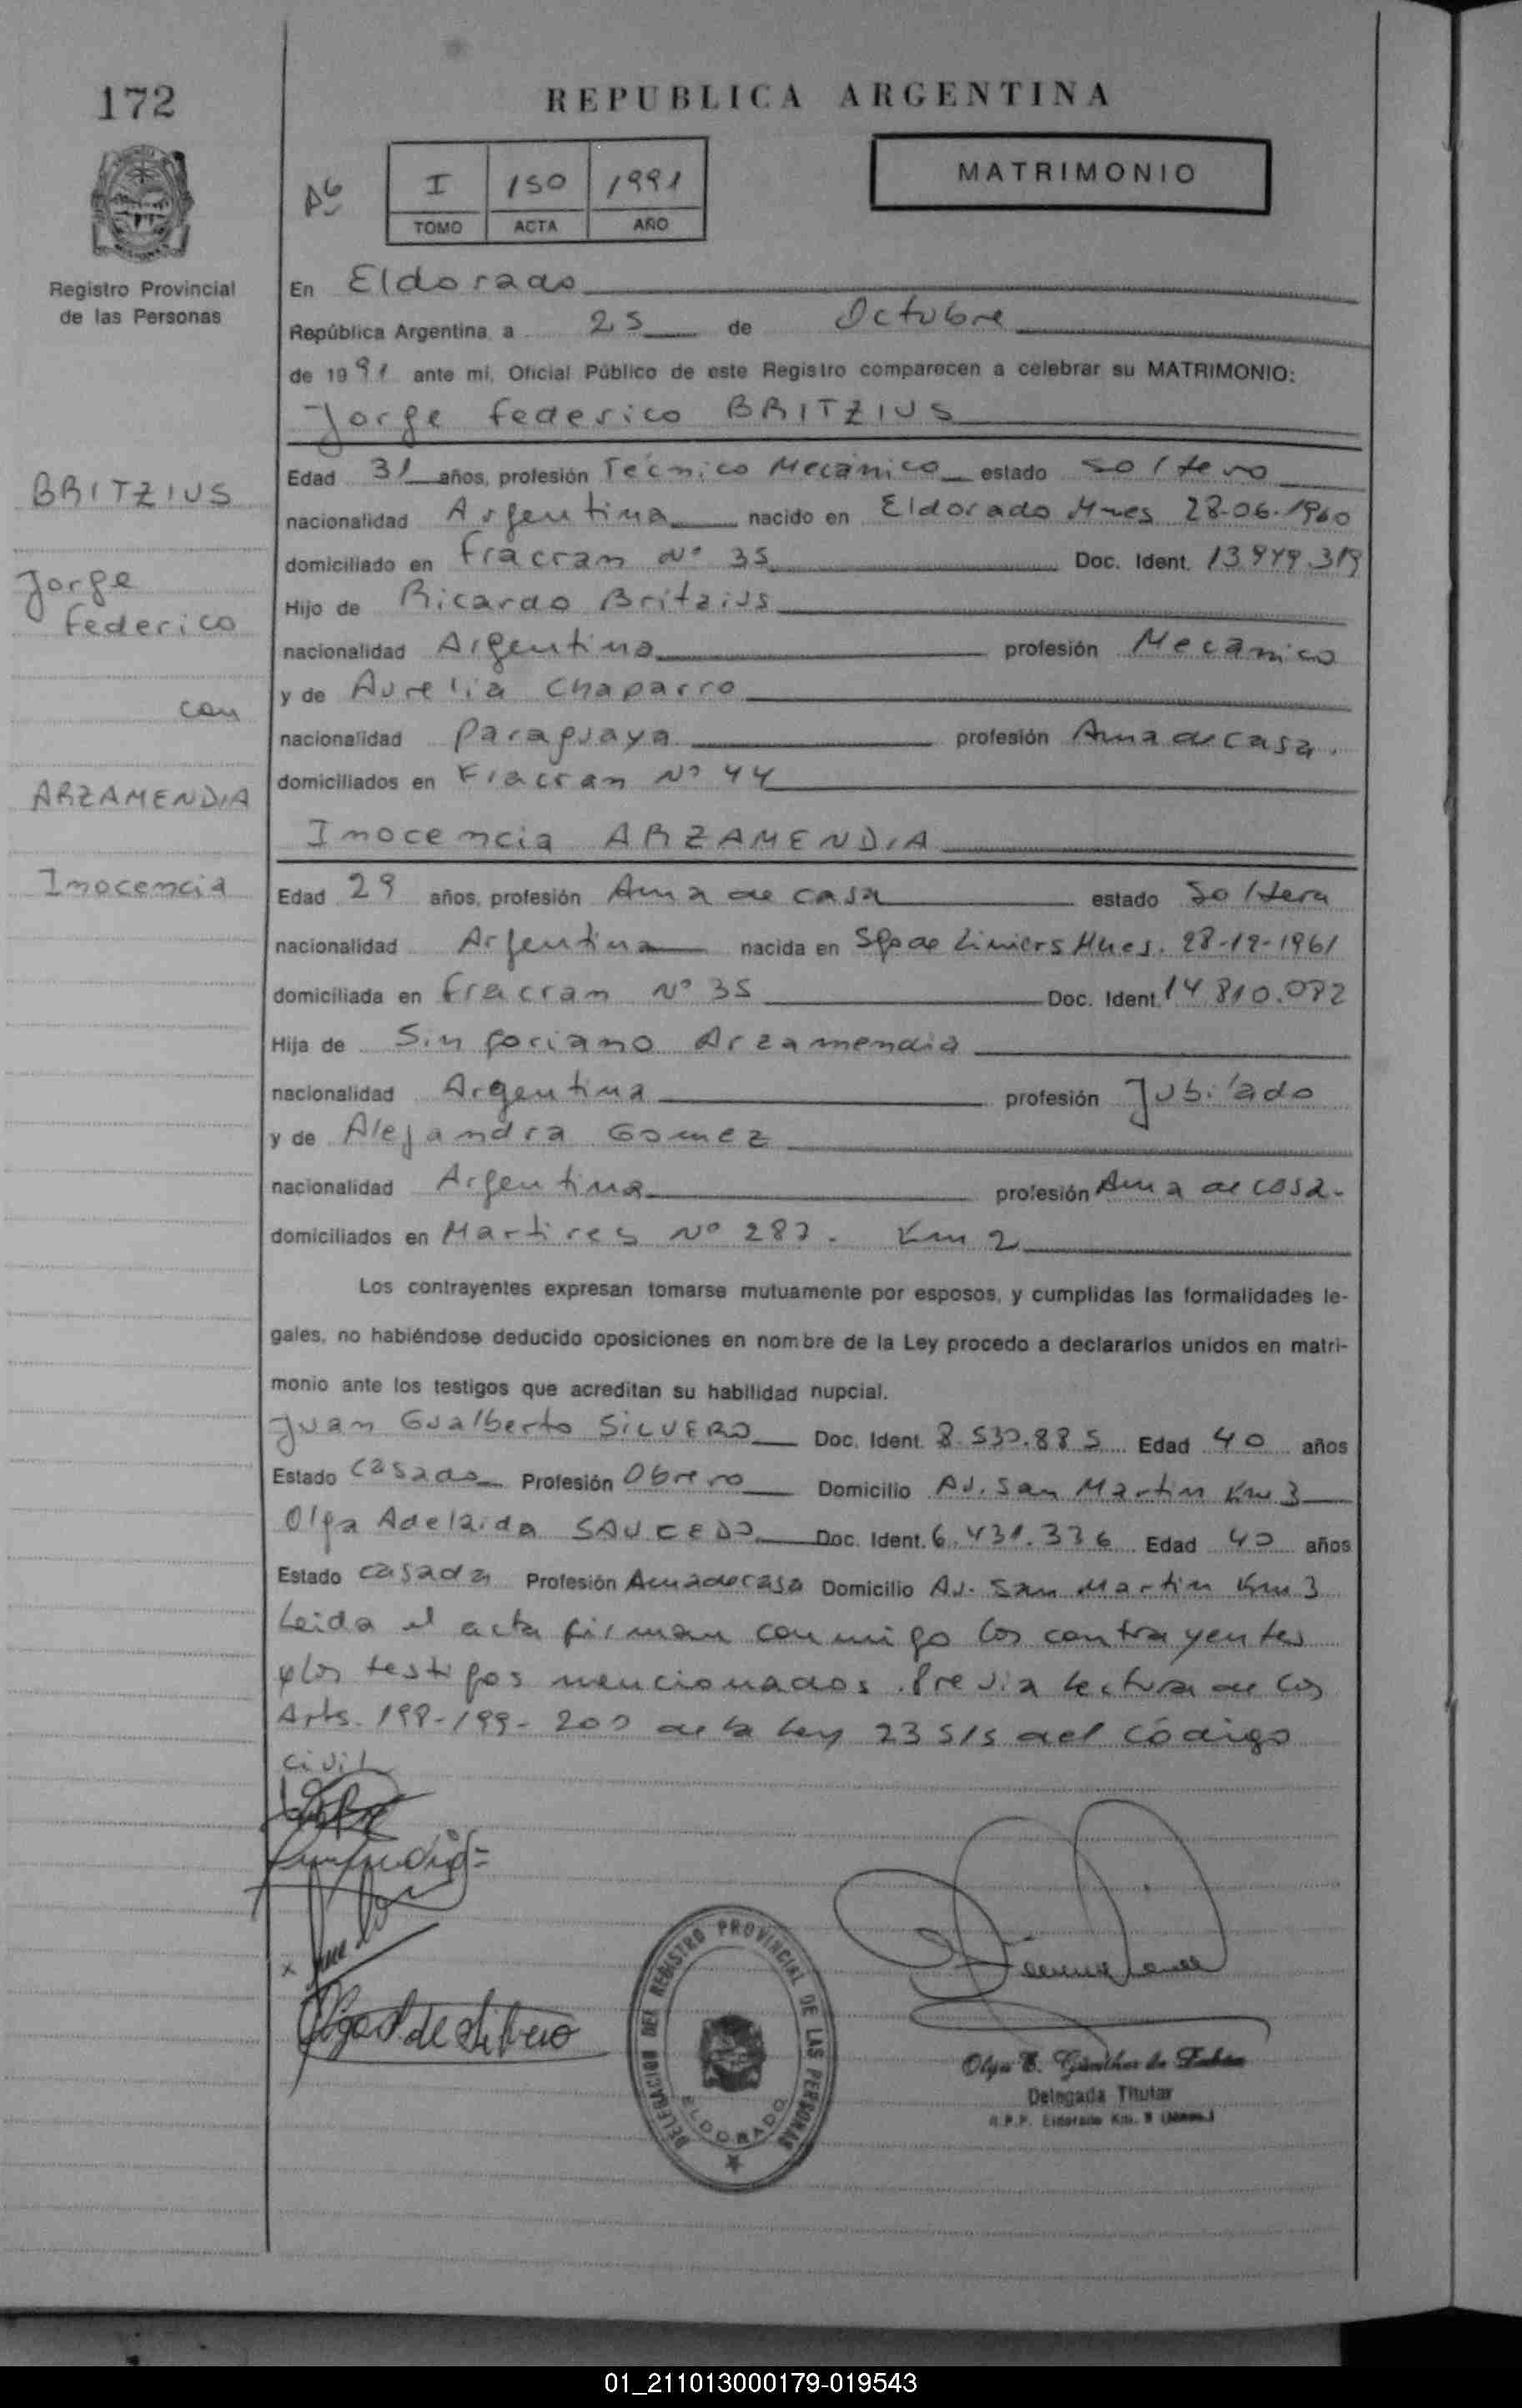 172
REPUBLICA ARGENTINA
I 150 1991
TOMO ACTA AÑO
MATRIMONIO
Registro Provincial
de las Personas
En Eldorado
República Argentina, a 25 de Octubre
de 1991 ante mí, Oficial Público de este Registro comparecen a celebrar su MATRIMONIO:
Jorge Federico BRITZIUS
BRITZIUS
Jorge
Federico
con
ARZAMENDIA
Inocencia
Edad 31 años, profesión Técnico Mecánico estado soltero
nacionalidad Argentina nacido en Eldorado Mnes 28-06-1960
domiciliado en Fracran Nº 35 Doc. Ident. 13.979.319
Hijo de Ricardo Britzius
nacionalidad Argentina profesión Mecánico
y de Aurelia Chaparro
nacionalidad Paraguaya profesión Ama de casa.
domiciliados en Fracran Nº 44
Inocencia ARZAMENDIA
Edad 29 años, profesión Ama de casa estado Soltera
nacionalidad Argentina nacida en Sgo de Liniers Mnes. 28-12-1961
domiciliada en Fracran Nº 35 Doc. Ident. 14.810.082
Hija de Sinforiano Arzamendia
nacionalidad Argentina profesión Jubilado
y de Alejandra Gomez
nacionalidad Argentina profesión Ama de casa.
domiciliados en Martires Nº 287. Km 2
Los contrayentes expresan tomarse mutuamente por esposos, y cumplidas las formalidades le-
gales, no habiéndose deducido oposiciones en nombre de la Ley procedo a declararlos unidos en matri-
monio ante los testigos que acreditan su habilidad nupcial.
Juan Gualberto SILVERO Doc. Ident. 8.530.885 Edad 40 años
Estado casado Profesión Obrero Domicilio Av. San Martin Km 3
Olga Adelaida SAUCEDO Doc. Ident. 6.431.336 Edad 40 años
Estado casada Profesión Ama de casa Domicilio Av. San Martin Km 3
Leida el acta firman conmigo los contrayentes
y los testigos mencionados. Previa lectura de los
Arts. 198-199-200 de la Ley 23515 del código
civil
Olga S de Silvero
DELEGACION DEL REGISTRO PROVINCIAL DE LAS PERSONAS
ELDORADO
Olga E. Günther de
Delegada Titular
R.P.P. Eldorado Km. 9 (Mnes.)
01_211013000179-019543